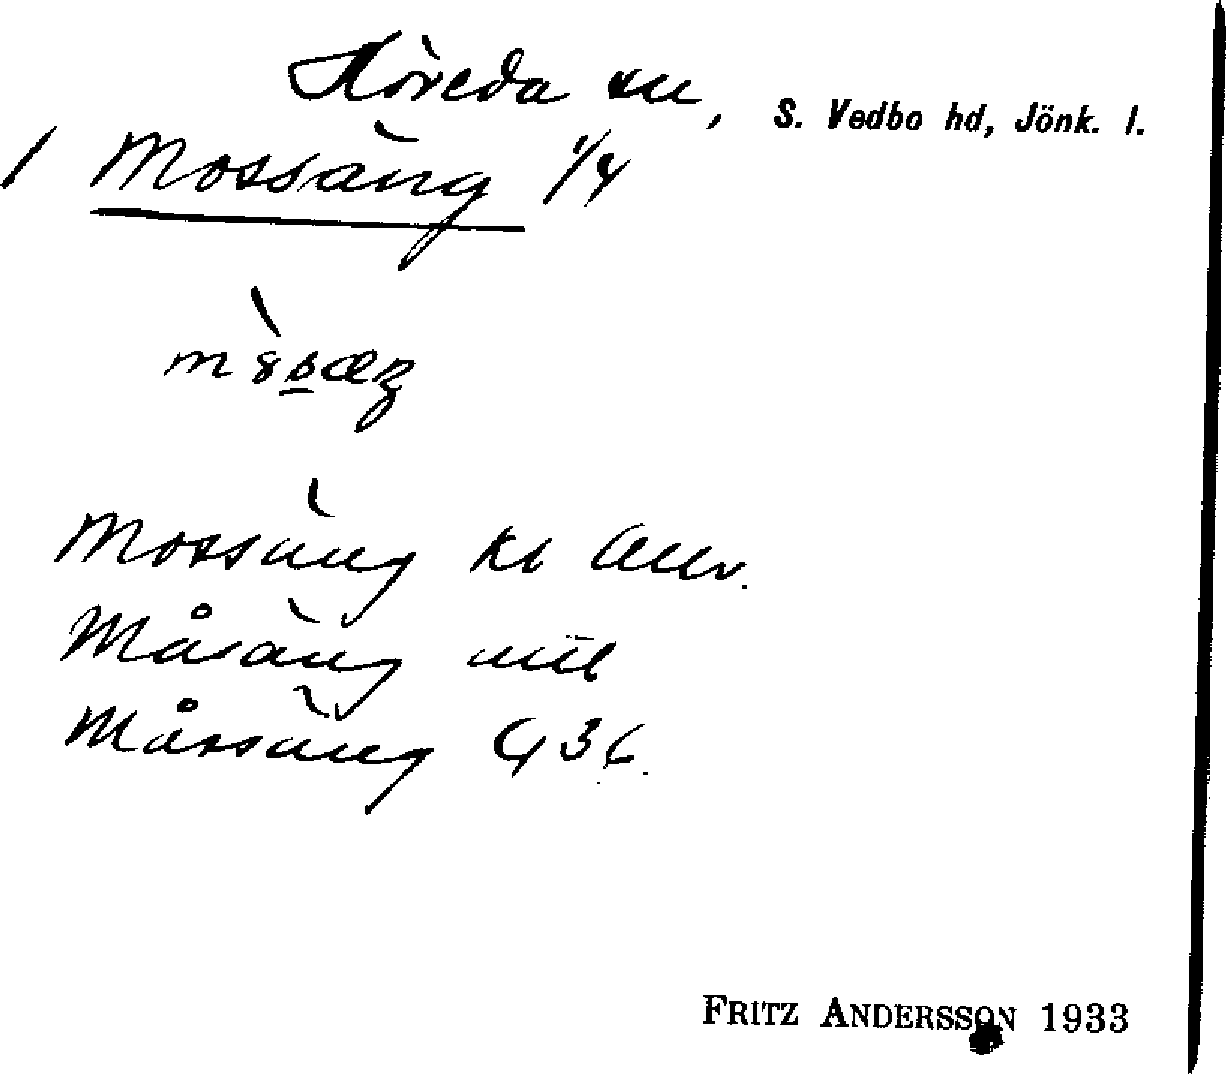 Höreda sn, S. Vedbo hd, Jönk. l.
1 Mossäng 1/4
Mossäng
Måsäng
Mårsäng G 36.
FRITZ ANDERSSON 1933